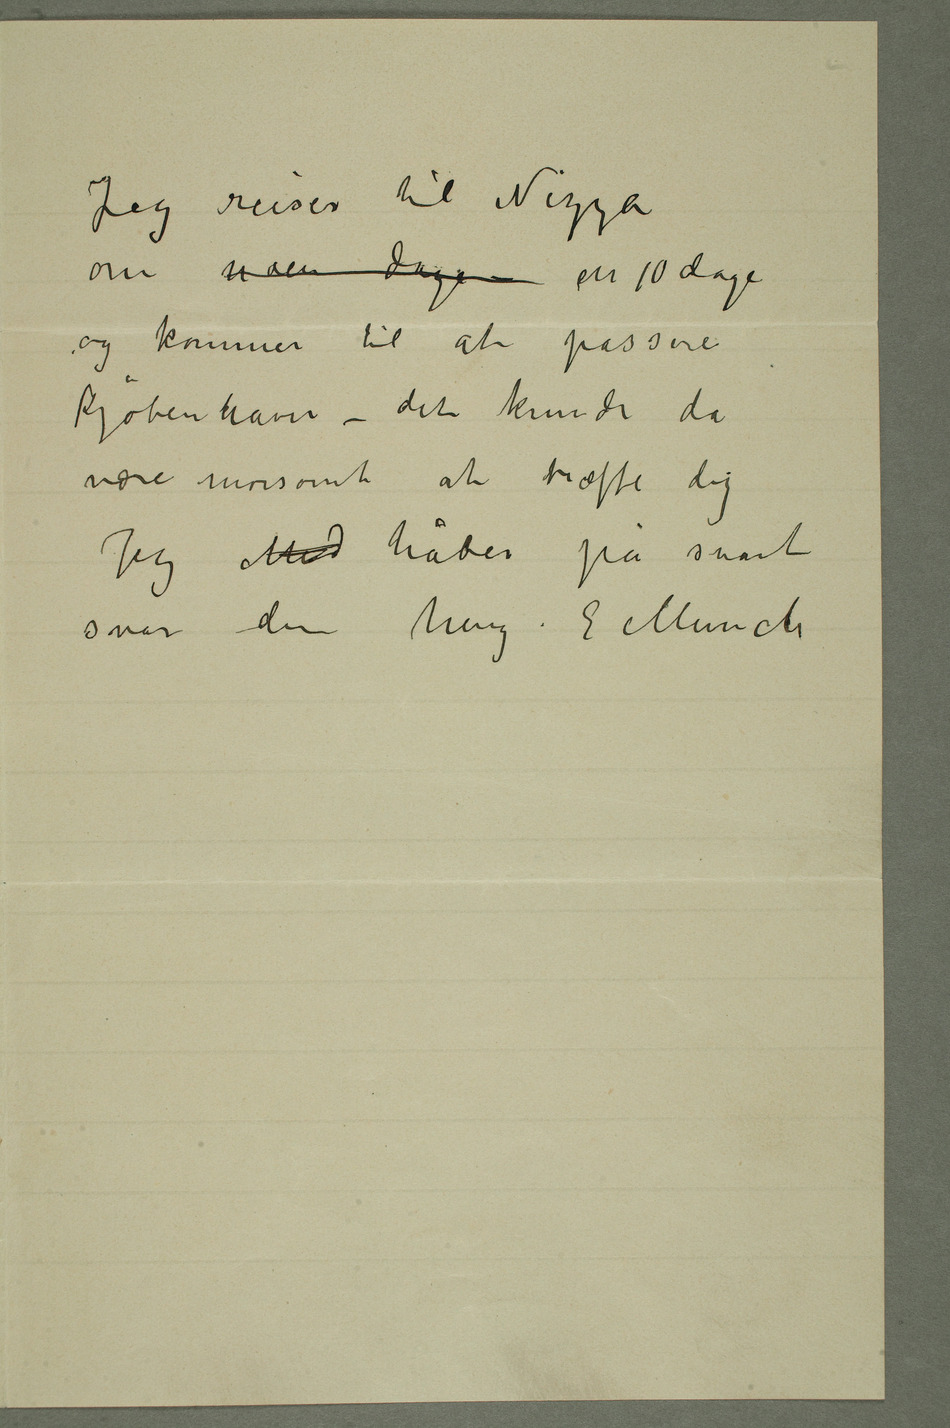 Jeg reiser til Nizza
om noen dage en 10 dage
og kommer til at passere
Kjöbenhavn – det kunde da
være morsomt at træffe dig
Jeg Med håber på snart
svar din heng. E Munch